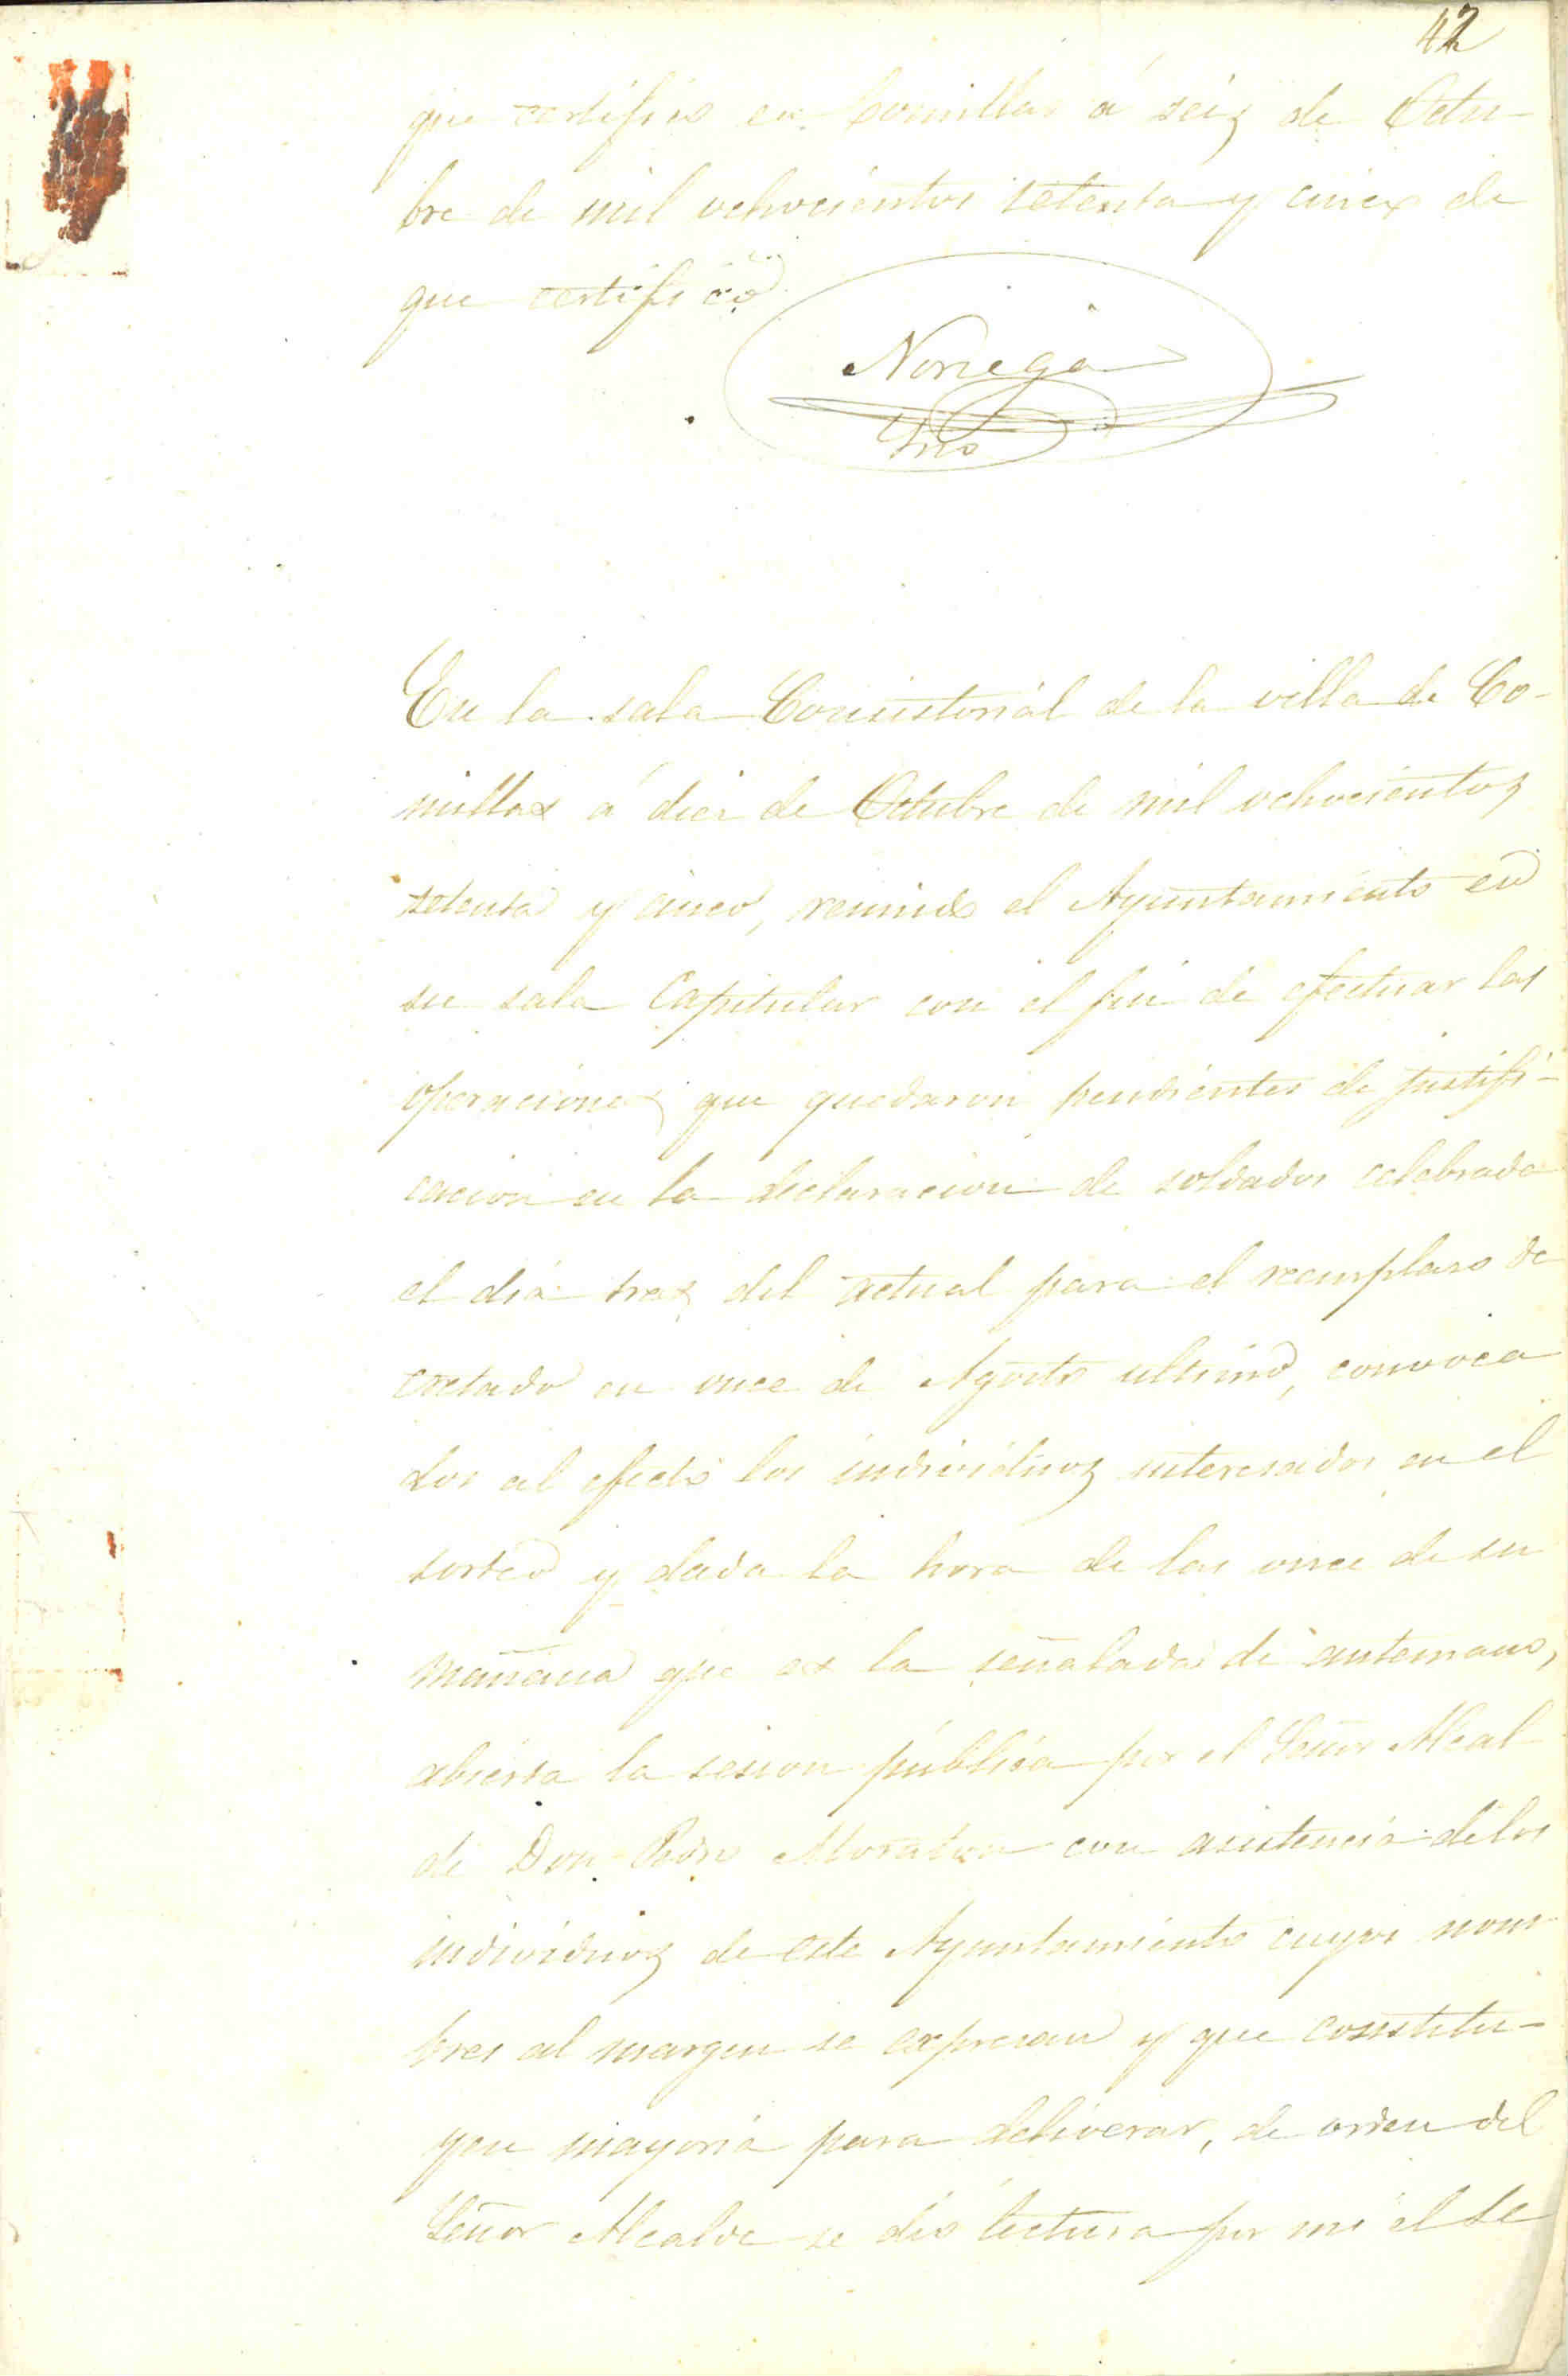 42
que certifico en Comillas á seis de Octu-
bre de mil ochocientos setenta y cinco de
que certifico
Noriega
Srio
En la sala Consistorial de la villa de Co-
millas á diez de Octubre de mil ochocientos
setenta y cinco, reunido el Ayuntamiento en
su sala Capitular con el fin de efectuar las
operaciones que quedaron pendientes de justifi-
cacion en la declaracion de soldados celebrada
el dia tres del actual para el reemplazo de
cretado en once de Agosto ultimo, convoca
dos al efecto los individuos interesados en el
sorteo y dada la hora de las once de su
mañana que es la señalada de antemano,
abierta la sesion pública por el Señor Alcal-
de Don con asistencia de los
individuos de este Ayuntamiento cuyos nom
bres al margen se expresan y que constitu-
yen mayoria para deliverar, de orden del
Señor Alcalde se dió lectura por mi el Se